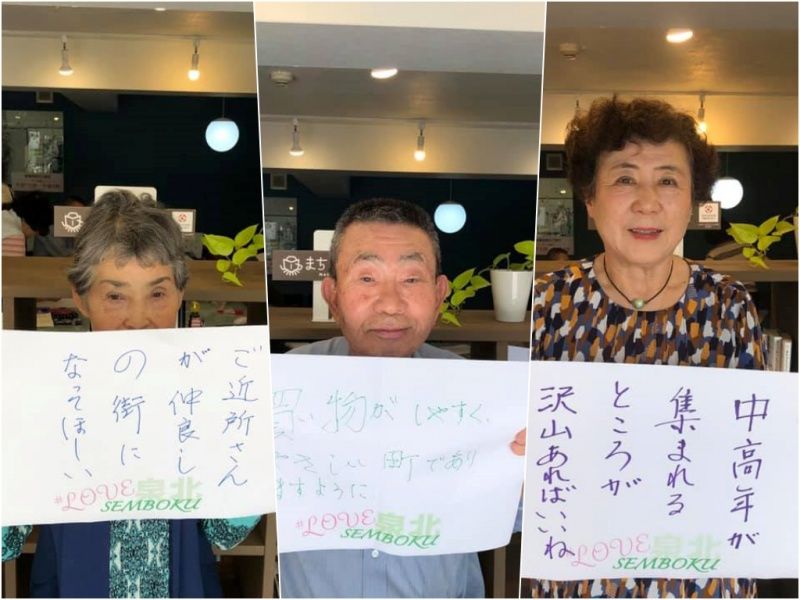 ご近所さん
が仲良し
の街に
なってほしい
#LOVE泉北
SEMBOKU
まち
買い物がしやすく、
やさしい町であり
ますように
#LOVE泉北
SEMBOKU
中高年が
集まれる
ところが
沢山あればいいね
LOVE泉北
SEMBOKU